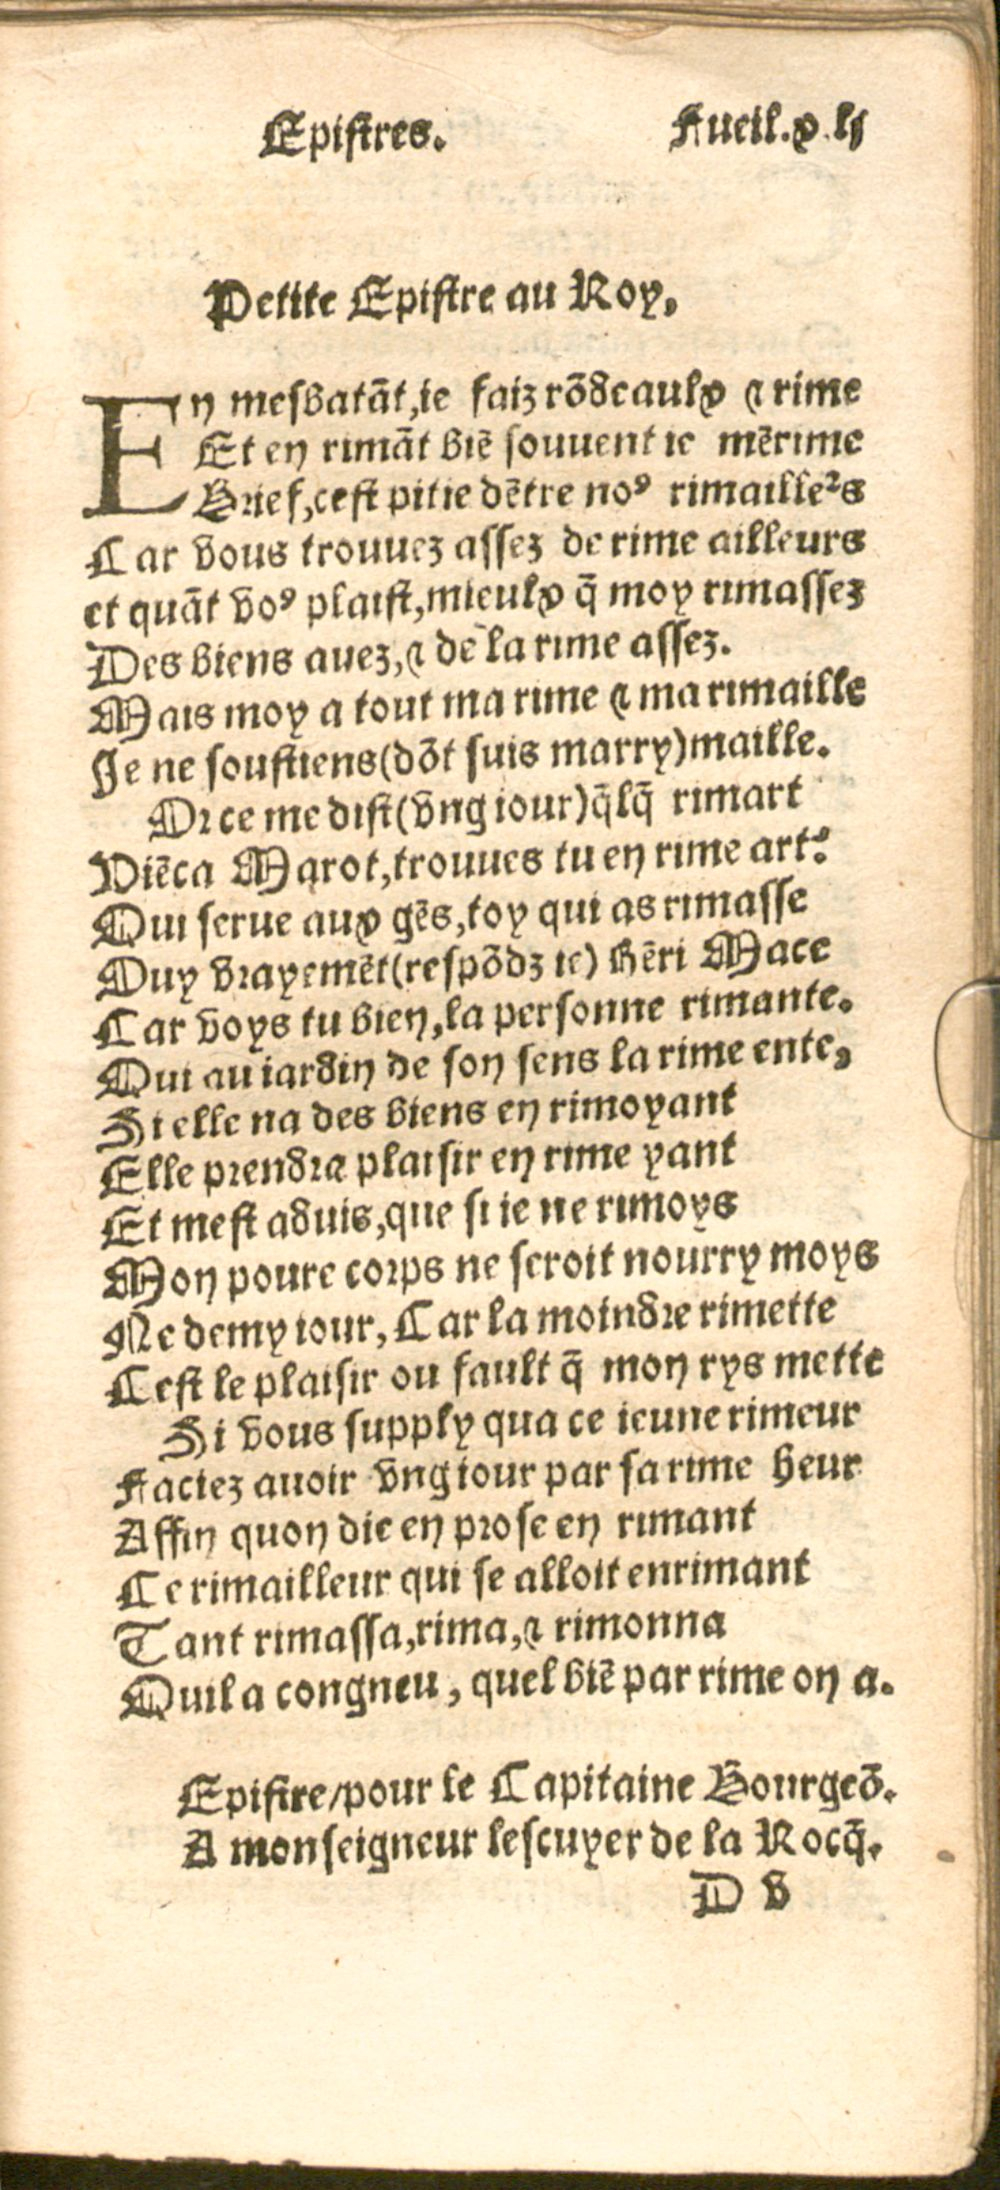 Epistres. Fueil.x.lj
Petite Epistre au Roy,
En mesbatāt,ie faiz rōdeaulx ⁊ rime
Et en rimāt biē souuent ie mērime
Brief,cest pitie dētre noꝰ rimailleᷣs
Car vous trouuez assez de rime ailleurs
et quāt voꝰ plaist,mieulx q̄ moy rimassez
Des biens auez,⁊ de la rime assez.
Mais moy a tout ma rime ⁊ ma rimaille
Je ne soustiens(dōt suis marry)maille.
Or ce me dist(vng iour)q̄lq̄ rimart
Viēca Marot,trouues tu en rime art?
Qui serue aux gēs,toy qui as rimasse
Ouy vrayemēt(respōdz ie) hēri Mace
Car voys tu bien,la personne rimante.
Qui au iardin de son sens la rime ente,
Si elle na des biens en rimoyant
Elle prendra plaisir en rime yant
Et mest aduis,que si ie ne rimoys
Mon poure corps ne seroit nourry moys
Ne demy iour, Car la moindre rimette
Cest le plaisir ou fault q̄ mon rys mette
Si vous supply qua ce ieune rimeur
Faciez auoir vng iour par sa rime heur
Affin quon die en prose en rimant
Ce rimailleur qui se alloit enrimant
Tant rimassa,rima,⁊ rimonna
Quil a congneu, quel biē par rime on a.
Epistre/pour le Capitaine Bourgeō.
A monseigneur lescuyer de la Rocq̄.
D v